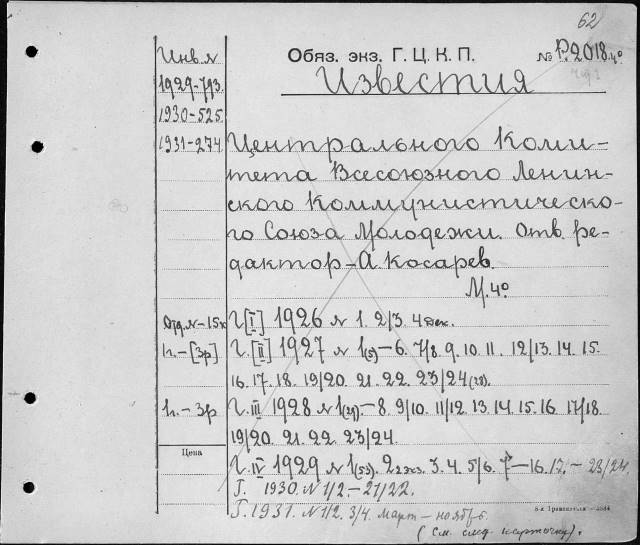 62
Инв. №
Обяз. экз. Г. Ц. К. П.
№ Р.2018.4º
Известия
1929-793.
1930-525.
1931-274.
Центрального Коми-
тета Всесоюзного Ленин-
ского Коммунистическо-
го Союза Молодежи. Отв. ре-
дактор-А. Косарев.
М. 4º
Отд. №-15к Г.[I] 1926 № 1. 2/3. 4 дек.
1г.-[3р] Г.[II] 1927 № 1(5)-6. 7/8. 9. 10. 11. 12/13. 14. 15.
16. 17. 18. 19/20. 21. 22. 23/24(28).
1г.-3р Г.III 1928 № 1(29).-8. 9/10. 11/12. 13. 14. 15. 16. 17/18.
19/20. 21. 22. 23/24.
Цена
Г.IV 1929 № 1(53). 2 2экз. 3. 4. 5/6. 7-16. 17.-23/24.
Г. 1930. № 1/2.-21/22.
Г. 1931. № 1/2. 3/4. март-ноябрь.
(см. след. карточку).